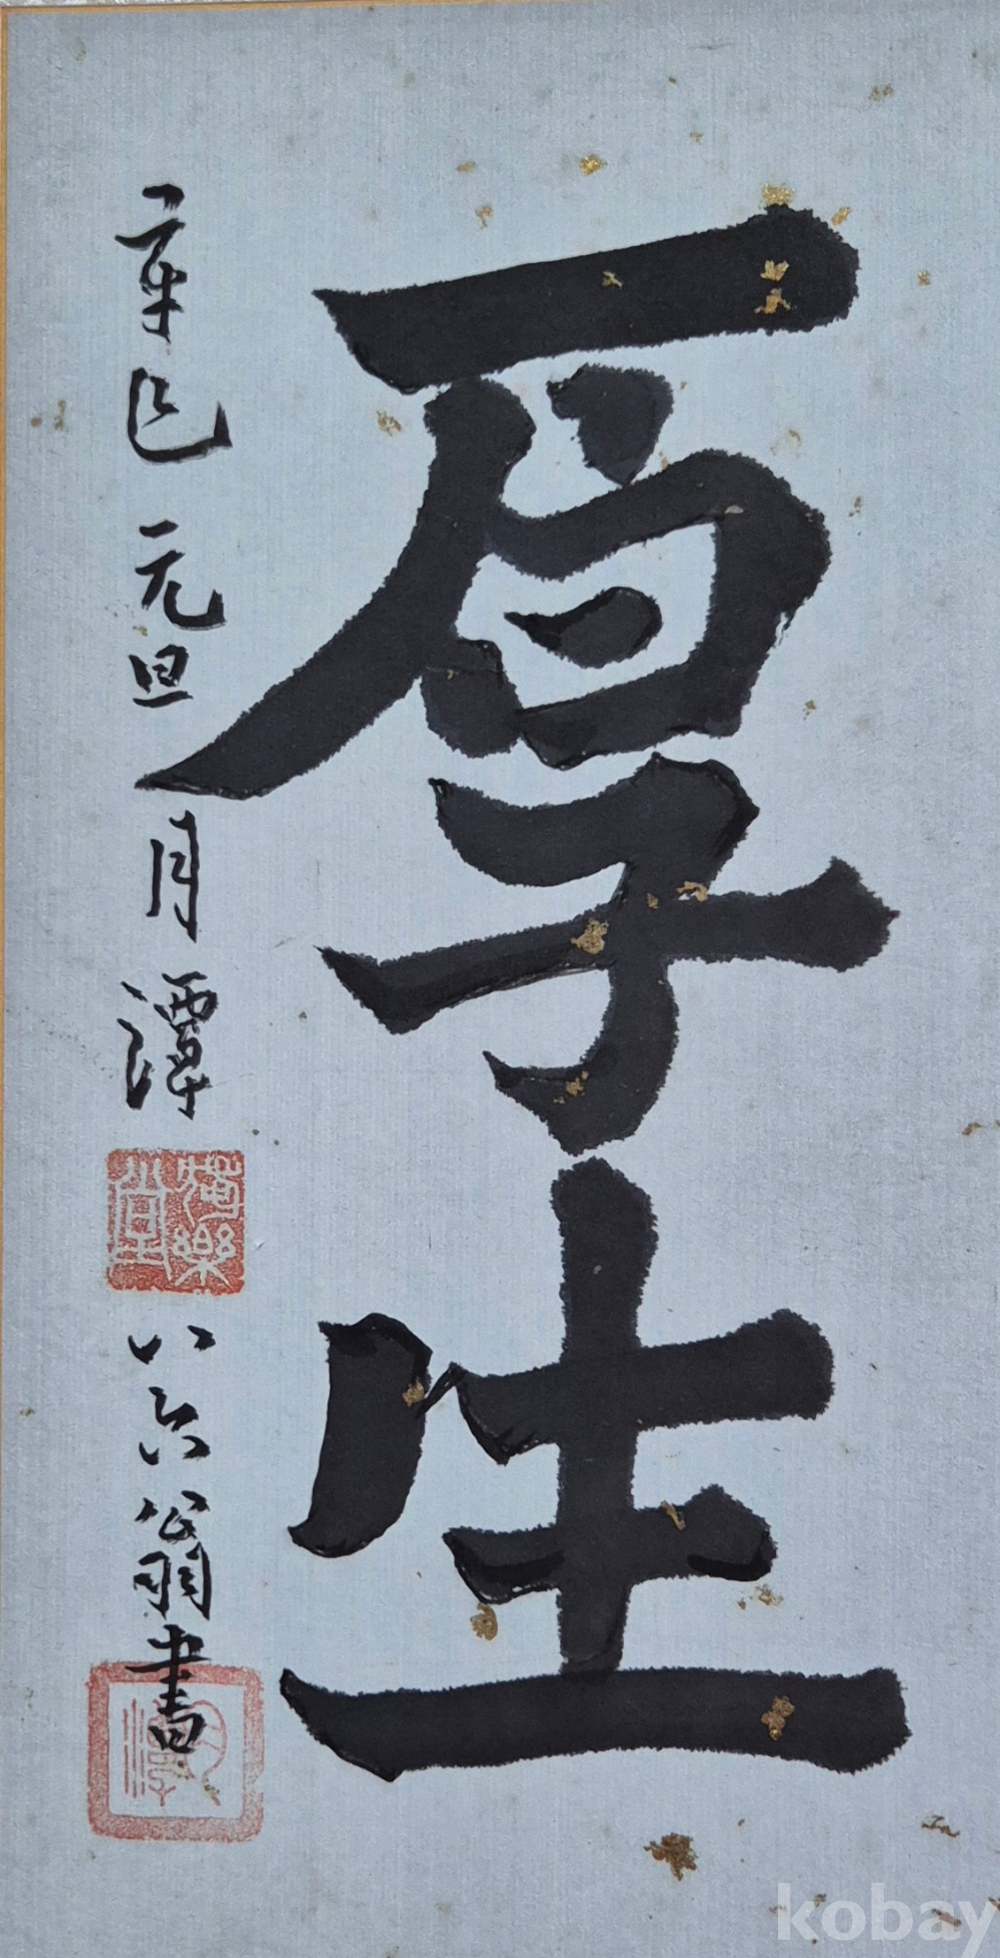 厚生
辛巳元旦 月潭 八六翁書
kobay